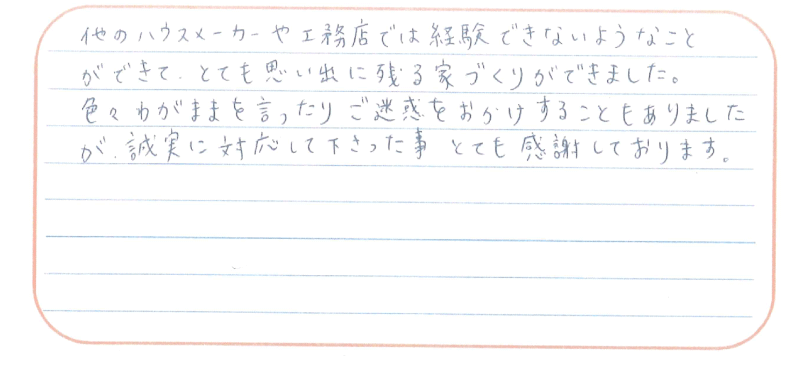 他のハウスメーカーや工務店では経験できないようなこと
ができて、とても思い出に残る家づくりができました。
色々わがままを言ったりご迷惑をおかけすることもありました
が、誠実に対応して下さった事 とても感謝しております。